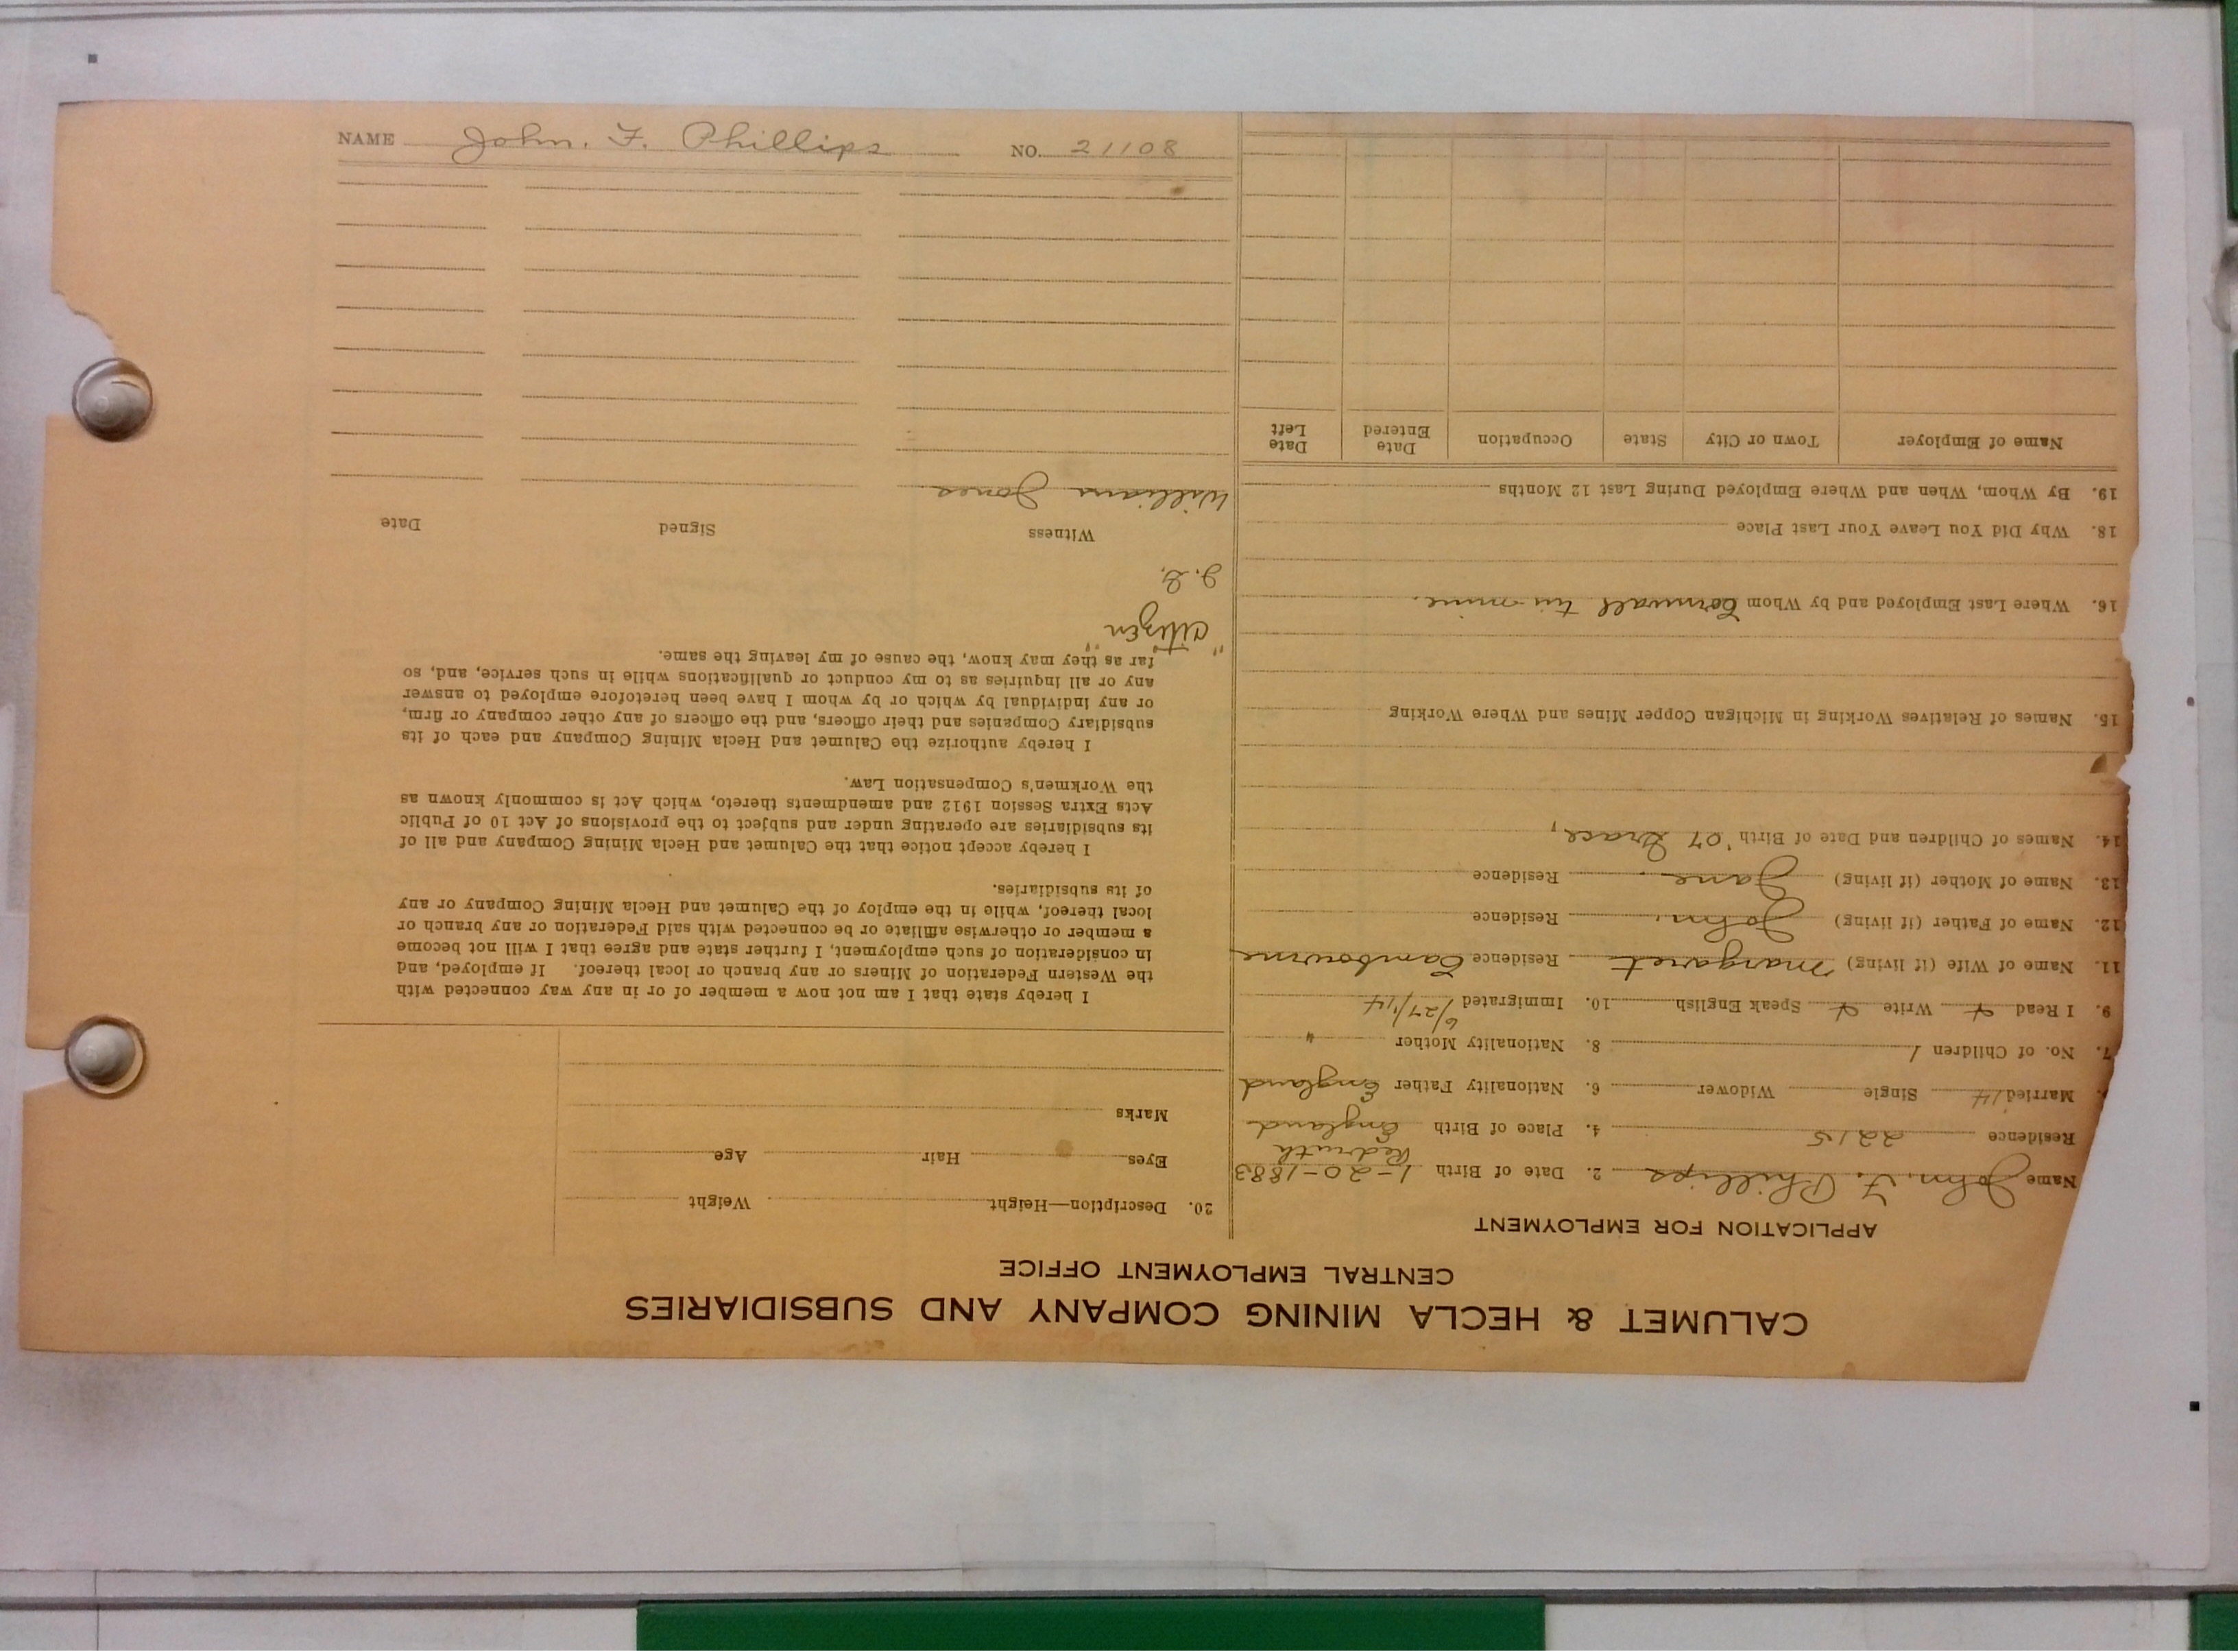 CALUMET & HECLA MINING COMPANY AND SUBSIDIARIES
CENTRAL EMPLOYMENT OFFICE
APPLICATION FOR EMPLOYMENT
Name John. F. Phillips 2. Date of Birth 1-20-1883
Residence 2215 4. Place of Birth Redruth England
Married 14 Single Widower 6. Nationality Father England
7. No. of Children 1 8. Nationality Mother "
9. I Read Write Speak English 10. Immigrated 6/27/14
11. Name of Wife (if living) Margaret Residence Cambourne
12. Name of Father (if living) John. Residence
13. Name of Mother (if living) Jane. Residence
14. Names of Children and Date of Birth '07 Grace,
15. Names of Relatives Working in Michigan Copper Mines and Where Working
16. Where Last Employed and by Whom Cornwall tin mine.
18. Why Did You Leave Your Last Place
19. By Whom, When and Where Employed During Last 12 Months
Name of Employer Town or City State Occupation Date Entered Date Left
20. Description—Height Weight
Eyes Hair Age
Marks
I hereby state that I am not now a member of or in any way connected with
the Western Federation of Miners or any branch or local thereof. If employed, and
in consideration of such employment, I further state and agree that I will not become
a member or otherwise affiliate or be connected with said Federation or any branch or
local thereof, while in the employ of the Calumet and Hecla Mining Company or any
of its subsidiaries.
I hereby accept notice that the Calumet and Hecla Mining Company and all of
its subsidiaries are operating under and subject to the provisions of Act 10 of Public
Acts Extra Session 1912 and amendments thereto, which Act is commonly known as
the Workmen's Compensation Law.
I hereby authorize the Calumet and Hecla Mining Company and each of its
subsidiary Companies and their officers, and the officers of any other company or firm,
or any individual by which or by whom I have been heretofore employed to answer
any or all inquiries as to my conduct or qualifications while in such service, and, so
far as they may know, the cause of my leaving the same.
"Citizen"
Witness Signed Date
William Jones
NAME John. F. Phillips NO. 21108